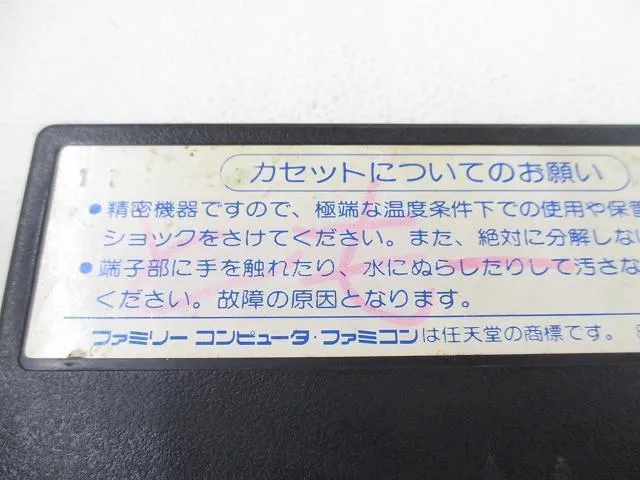 カセットについてのお願い
●精密機器ですので、極端な温度条件下での使用や保管
ショックをさけてください。また、絶対に分解しない
●端子部に手を触れたり、水にぬらしたりして汚さな
ください。故障の原因となります。
ファミリーコンピュータ・ファミコンは任天堂の商標です。